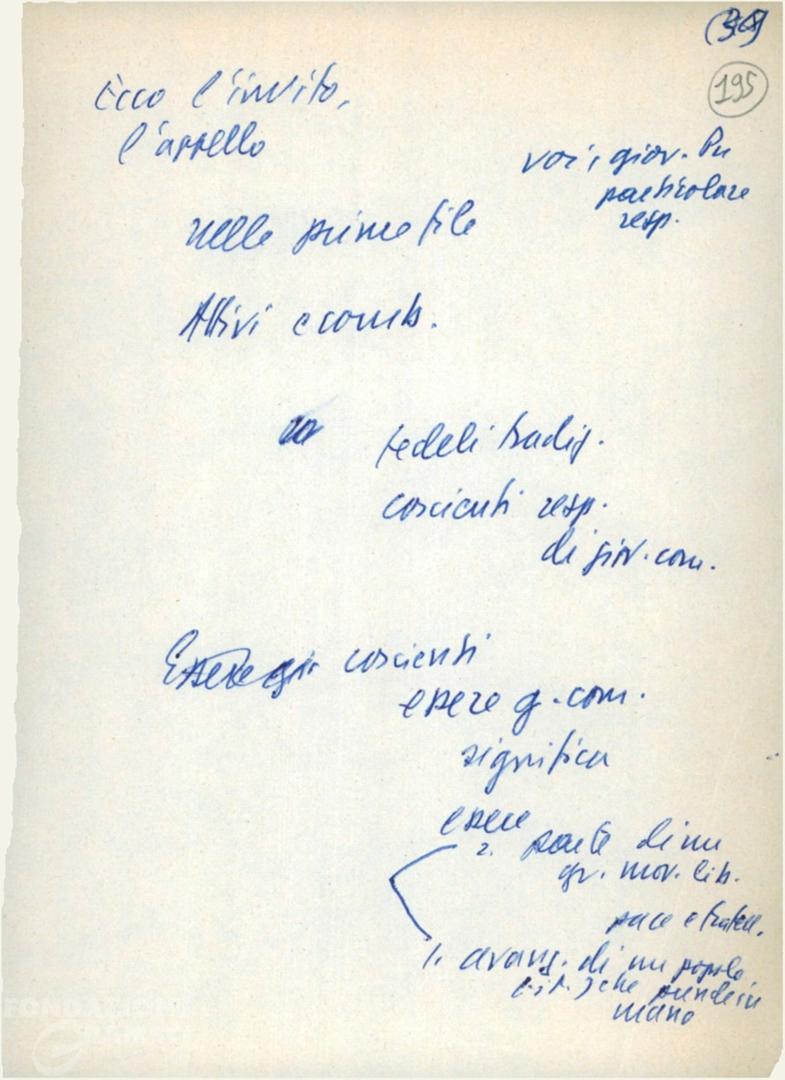 (38)
195
Ecco l'invito,
l'appello
voi, giov. In
particolare
resp.
nelle prime file
Attivi e comb.
fedeli tradiz.
coscienti resp.
di giov. com.
Essere coscienti
essere g. com.
significa
essere
2. parte di un
gr. mov. lib.
pace e fratell.
1. avang. di un popolo
che prende in
mano
FONDAZIONE
GRAMSCI